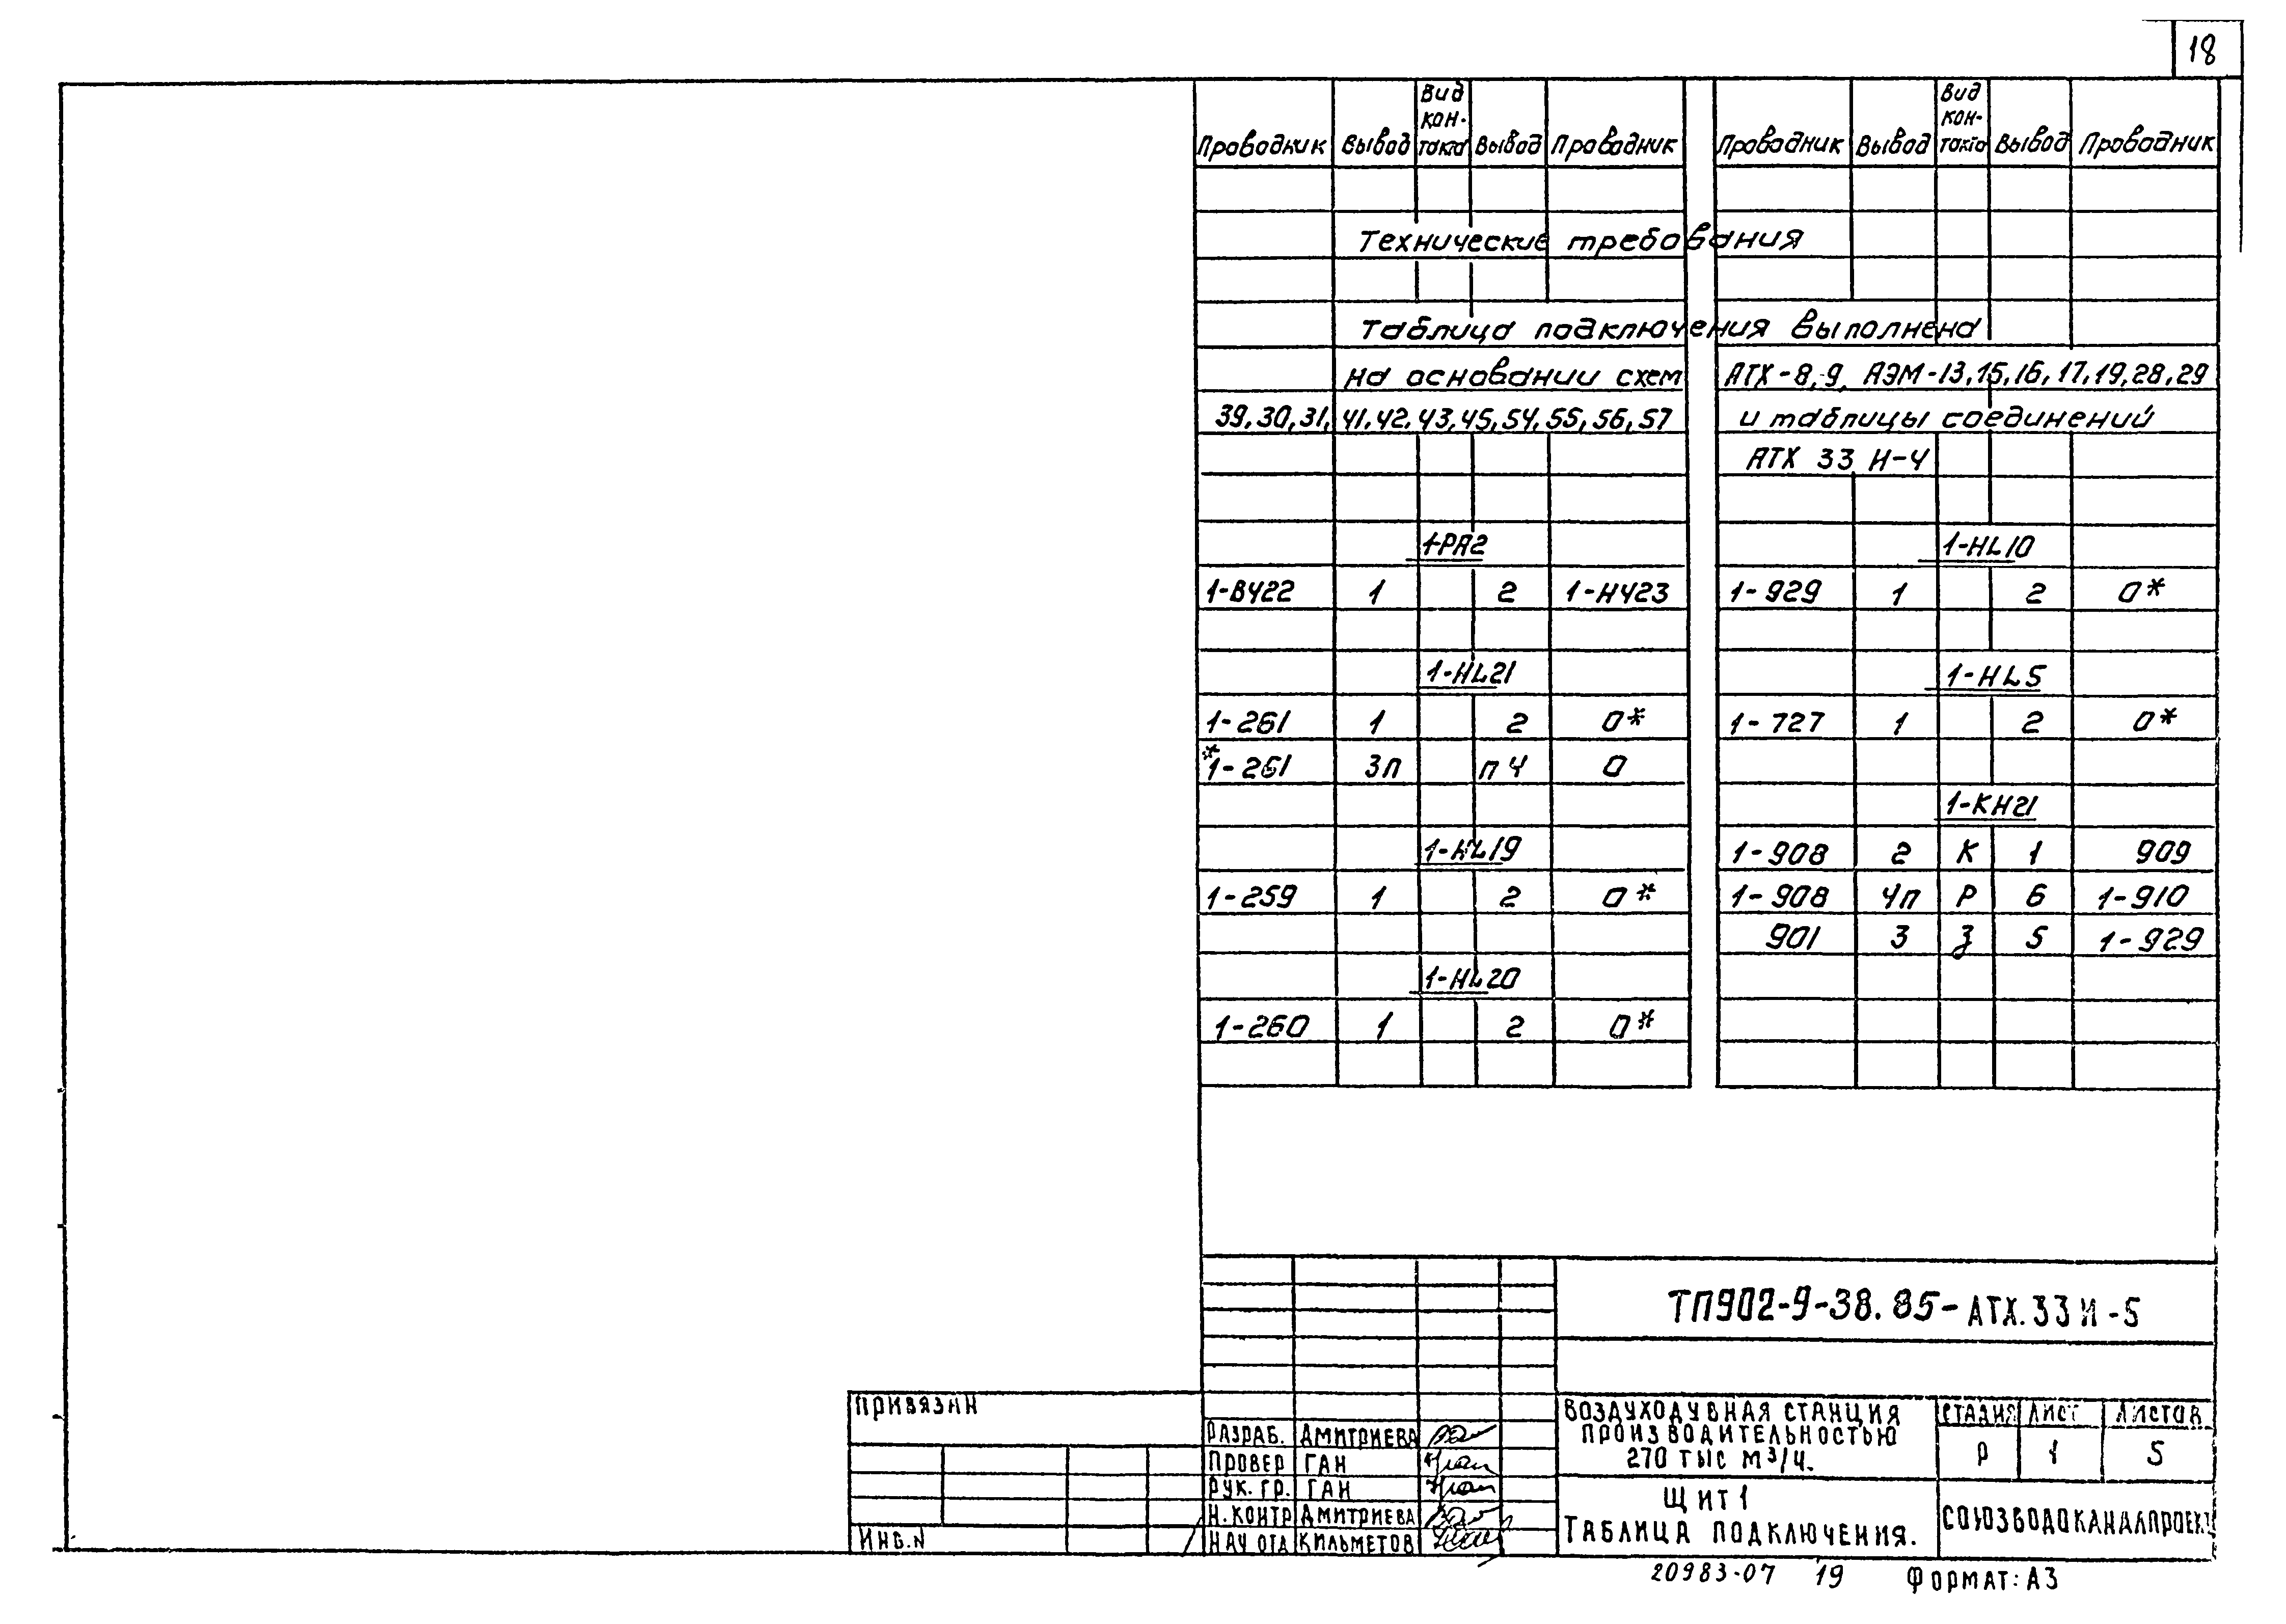 18
Проводник Вывод Вид кон- такта Вывод Проводник
Проводник Вывод Вид кон- такта Вывод Проводник
Технические требования
Таблица подключения выполнена
на основании схем АТХ-8,9, АЭМ-13,15,16,17,19,28,29
39,30,31,41,42,43,45,54,55,56,57 и таблицы соединений
АТХ 33 И-4
1-РА2
1-В422 1 2 1-Н423
1-HL21
1-261 1 2 0*
*1-261 3п п4 0
1-HL19
1-259 1 2 0*
1-HL20
1-260 1 2 0*
1-HL10
1-929 1 2 0*
1-HL5
1-727 1 2 0*
1-КН21
1-908 2 К 1 909
1-908 4п Р 6 1-910
901 3 З 5 1-929
ТП902-9-38.85-АТХ.33 И-5
ПРИВЯЗАН
ИНВ.N
РАЗРАБ. ДМИТРИЕВА
ПРОВЕР ГАН
РУК. ГР. ГАН
Н.КОНТР ДМИТРИЕВА
НАЧ ОТД КИЛЬМЕТОВ
ВОЗДУХОДУВНАЯ СТАНЦИЯ
ПРОИЗВОДИТЕЛЬНОСТЬЮ
270 ТЫС М³/Ч.
СТАДИЯ ЛИСТ ЛИСТОВ
Р 1 5
ЩИТ 1
ТАБЛИЦА ПОДКЛЮЧЕНИЯ.
СОЮЗВОДОКАНАЛПРОЕКТ
20983-07 19 ФОРМАТ: А3